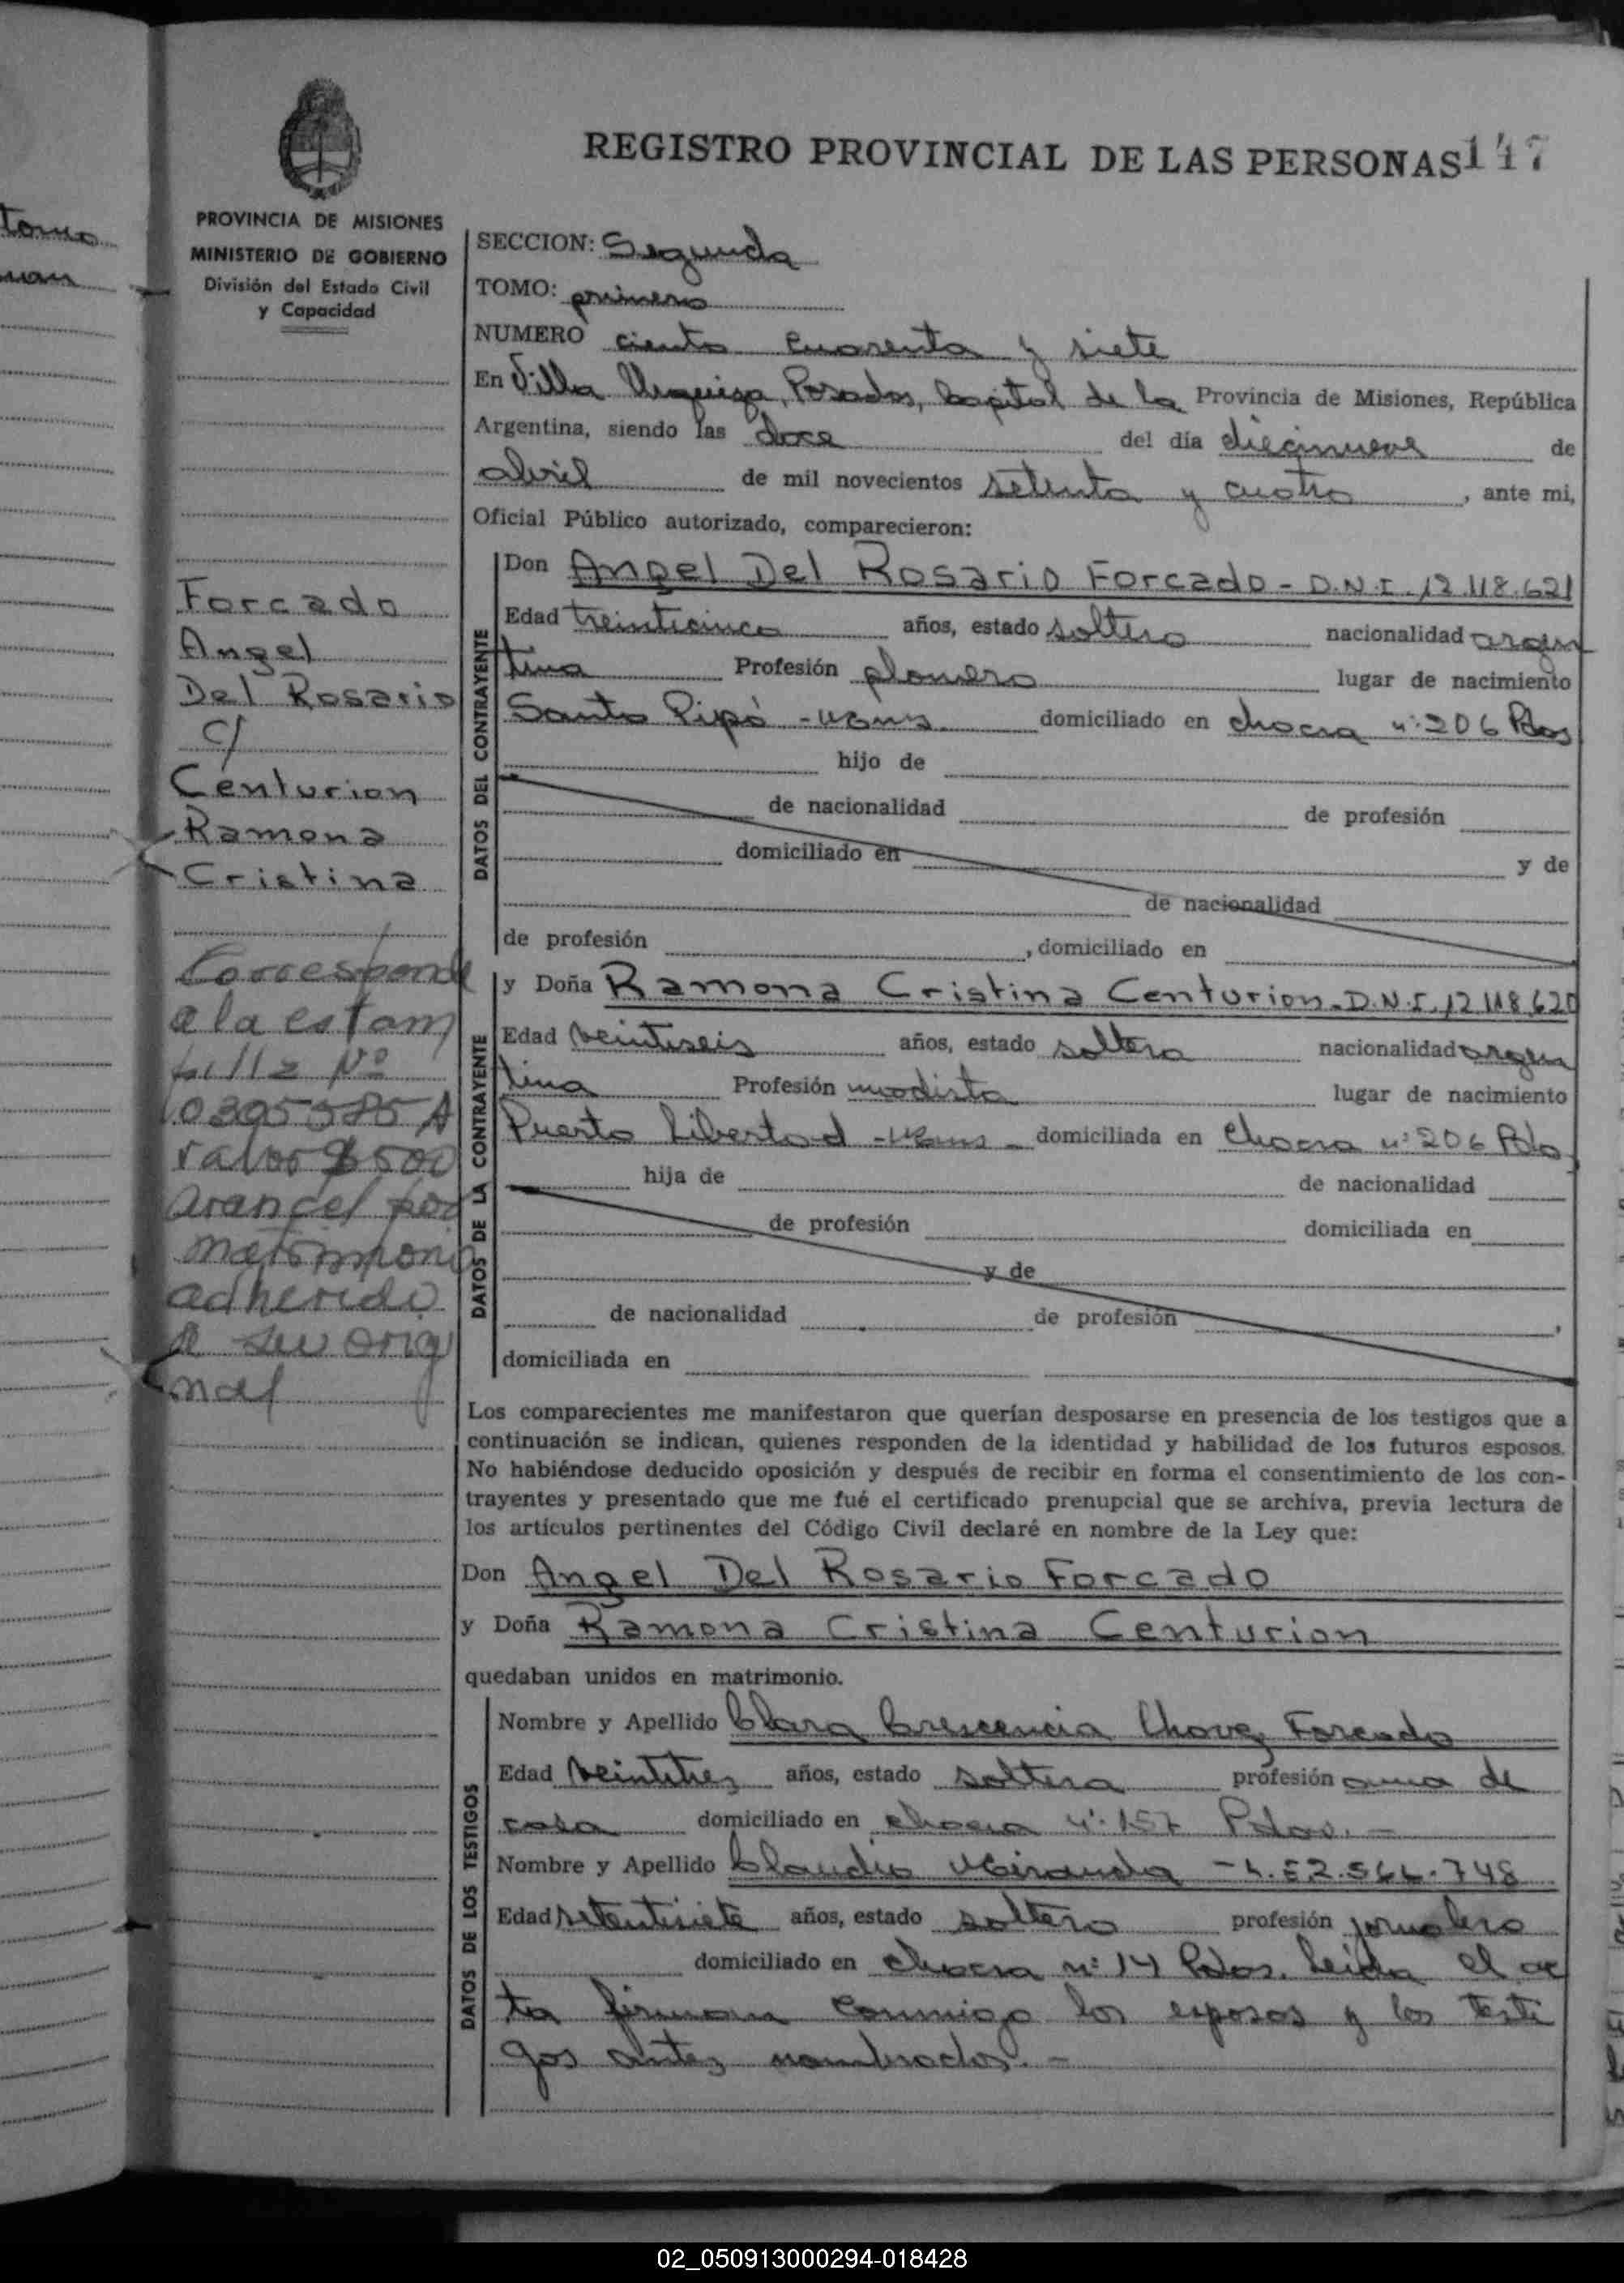 REGISTRO PROVINCIAL DE LAS PERSONAS 147
PROVINCIA DE MISIONES
MINISTERIO DE GOBIERNO
División del Estado Civil
y Capacidad
tomo
SECCION: Segunda
TOMO: primero
NUMERO ciento cuarenta y siete
En Villa Urquiza, Posadas, Capital de la Provincia de Misiones, República
Argentina, siendo las doce del día diecinueve de
abril de mil novecientos setenta y cuatro, ante mi,
Oficial Público autorizado, comparecieron:
Forcado
Angel
Del Rosario
c/
Centurion
Ramona
Cristina
Corresponde
a la estam
pilla Nº
0395585 A
valor $500
arancel por
matrimonio
adherido
a su origi
nal
DATOS DEL CONTRAYENTE
Don Angel Del Rosario Forcado - D.N.I. 12.118.621
Edad treinticinco años, estado soltero nacionalidad argen
tina Profesión plomero lugar de nacimiento
Santo Pipó - Mbnes domiciliado en chacra nº 206 Pdas
hijo de
de nacionalidad de profesión
domiciliado en y de
de nacionalidad
de profesión , domiciliado en
DATOS DE LA CONTRAYENTE
y Doña Ramona Cristina Centurion - D.N.I. 12.118.620
Edad veintiseis años, estado soltera nacionalidad argen
tina Profesión modista lugar de nacimiento
Puerto Libertad - domiciliada en Chacra nº 206 Pdas
hija de de nacionalidad
de profesión domiciliada en
y de
de nacionalidad de profesión ,
domiciliada en
Los comparecientes me manifestaron que querían desposarse en presencia de los testigos que a
continuación se indican, quienes responden de la identidad y habilidad de los futuros esposos.
No habiéndose deducido oposición y después de recibir en forma el consentimiento de los con-
trayentes y presentado que me fué el certificado prenupcial que se archiva, previa lectura de
los artículos pertinentes del Código Civil declaré en nombre de la Ley que:
Don Angel Del Rosario Forcado
y Doña Ramona Cristina Centurion
quedaban unidos en matrimonio.
DATOS DE LOS TESTIGOS
Nombre y Apellido Clara Crescencia Chavez Forcado
Edad veintitrez años, estado soltera profesión ama de
casa domiciliado en chacra nº 157 Pdas. -
Nombre y Apellido Claudio Miranda - L.E. 2.566.748
Edad setentisiete años, estado soltero profesión jornalero
domiciliado en chacra nº 14 Pdas. Leida el ac
ta firman conmigo los esposos y los testi
gos antes nombrados. -
02_050913000294-018428